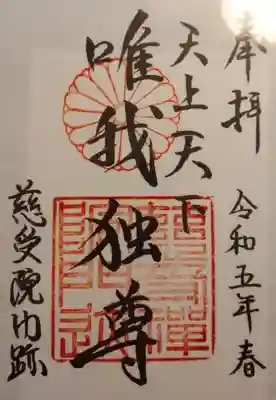 奉拝
令和五年春
天上天下
唯我独尊
慈受院門跡